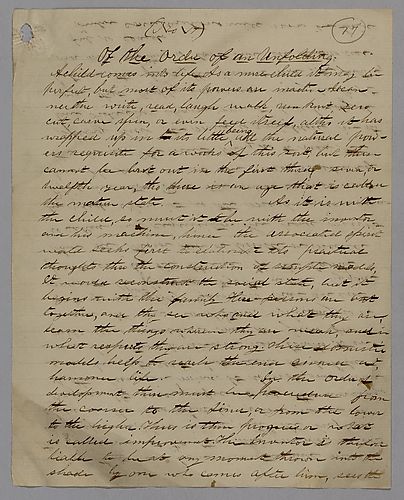 (No. 7)
77
Of the Order of an Unfolding.
A child comes into life. As a mere child it may be
perfect, but most of its powers are inactive. It can
neither write, read, laugh, walk, run
out, even spin, or even feed itself, altho it has
wrapped up in its little being all the natural pow-
ers requisite for a works of this sort, but this
cannot be best out in the first three, seven, or
twelfth year, tho there is an age that is called
the mature state. As it is with
the child, so must it be with the inventor
and his machine, hence the associated spirit
world seeks first to its practical
thoughts thro the construction of simple models.
It would the social state, but it
begins with the family. Few persons are bro't
together, and they see who and what they are,
learn the things wherein they are weak and in
what respects they are strong. These domestic
models help to reach the end
harmonic life. by the order of
development there must be procedure from
the coarser to the finer, or from the lower
to the higher. Thus is then progress or what
is called improvement. The inventor is therefore
liable to be at any moment thrown into the
shade by one who comes after him, sees the